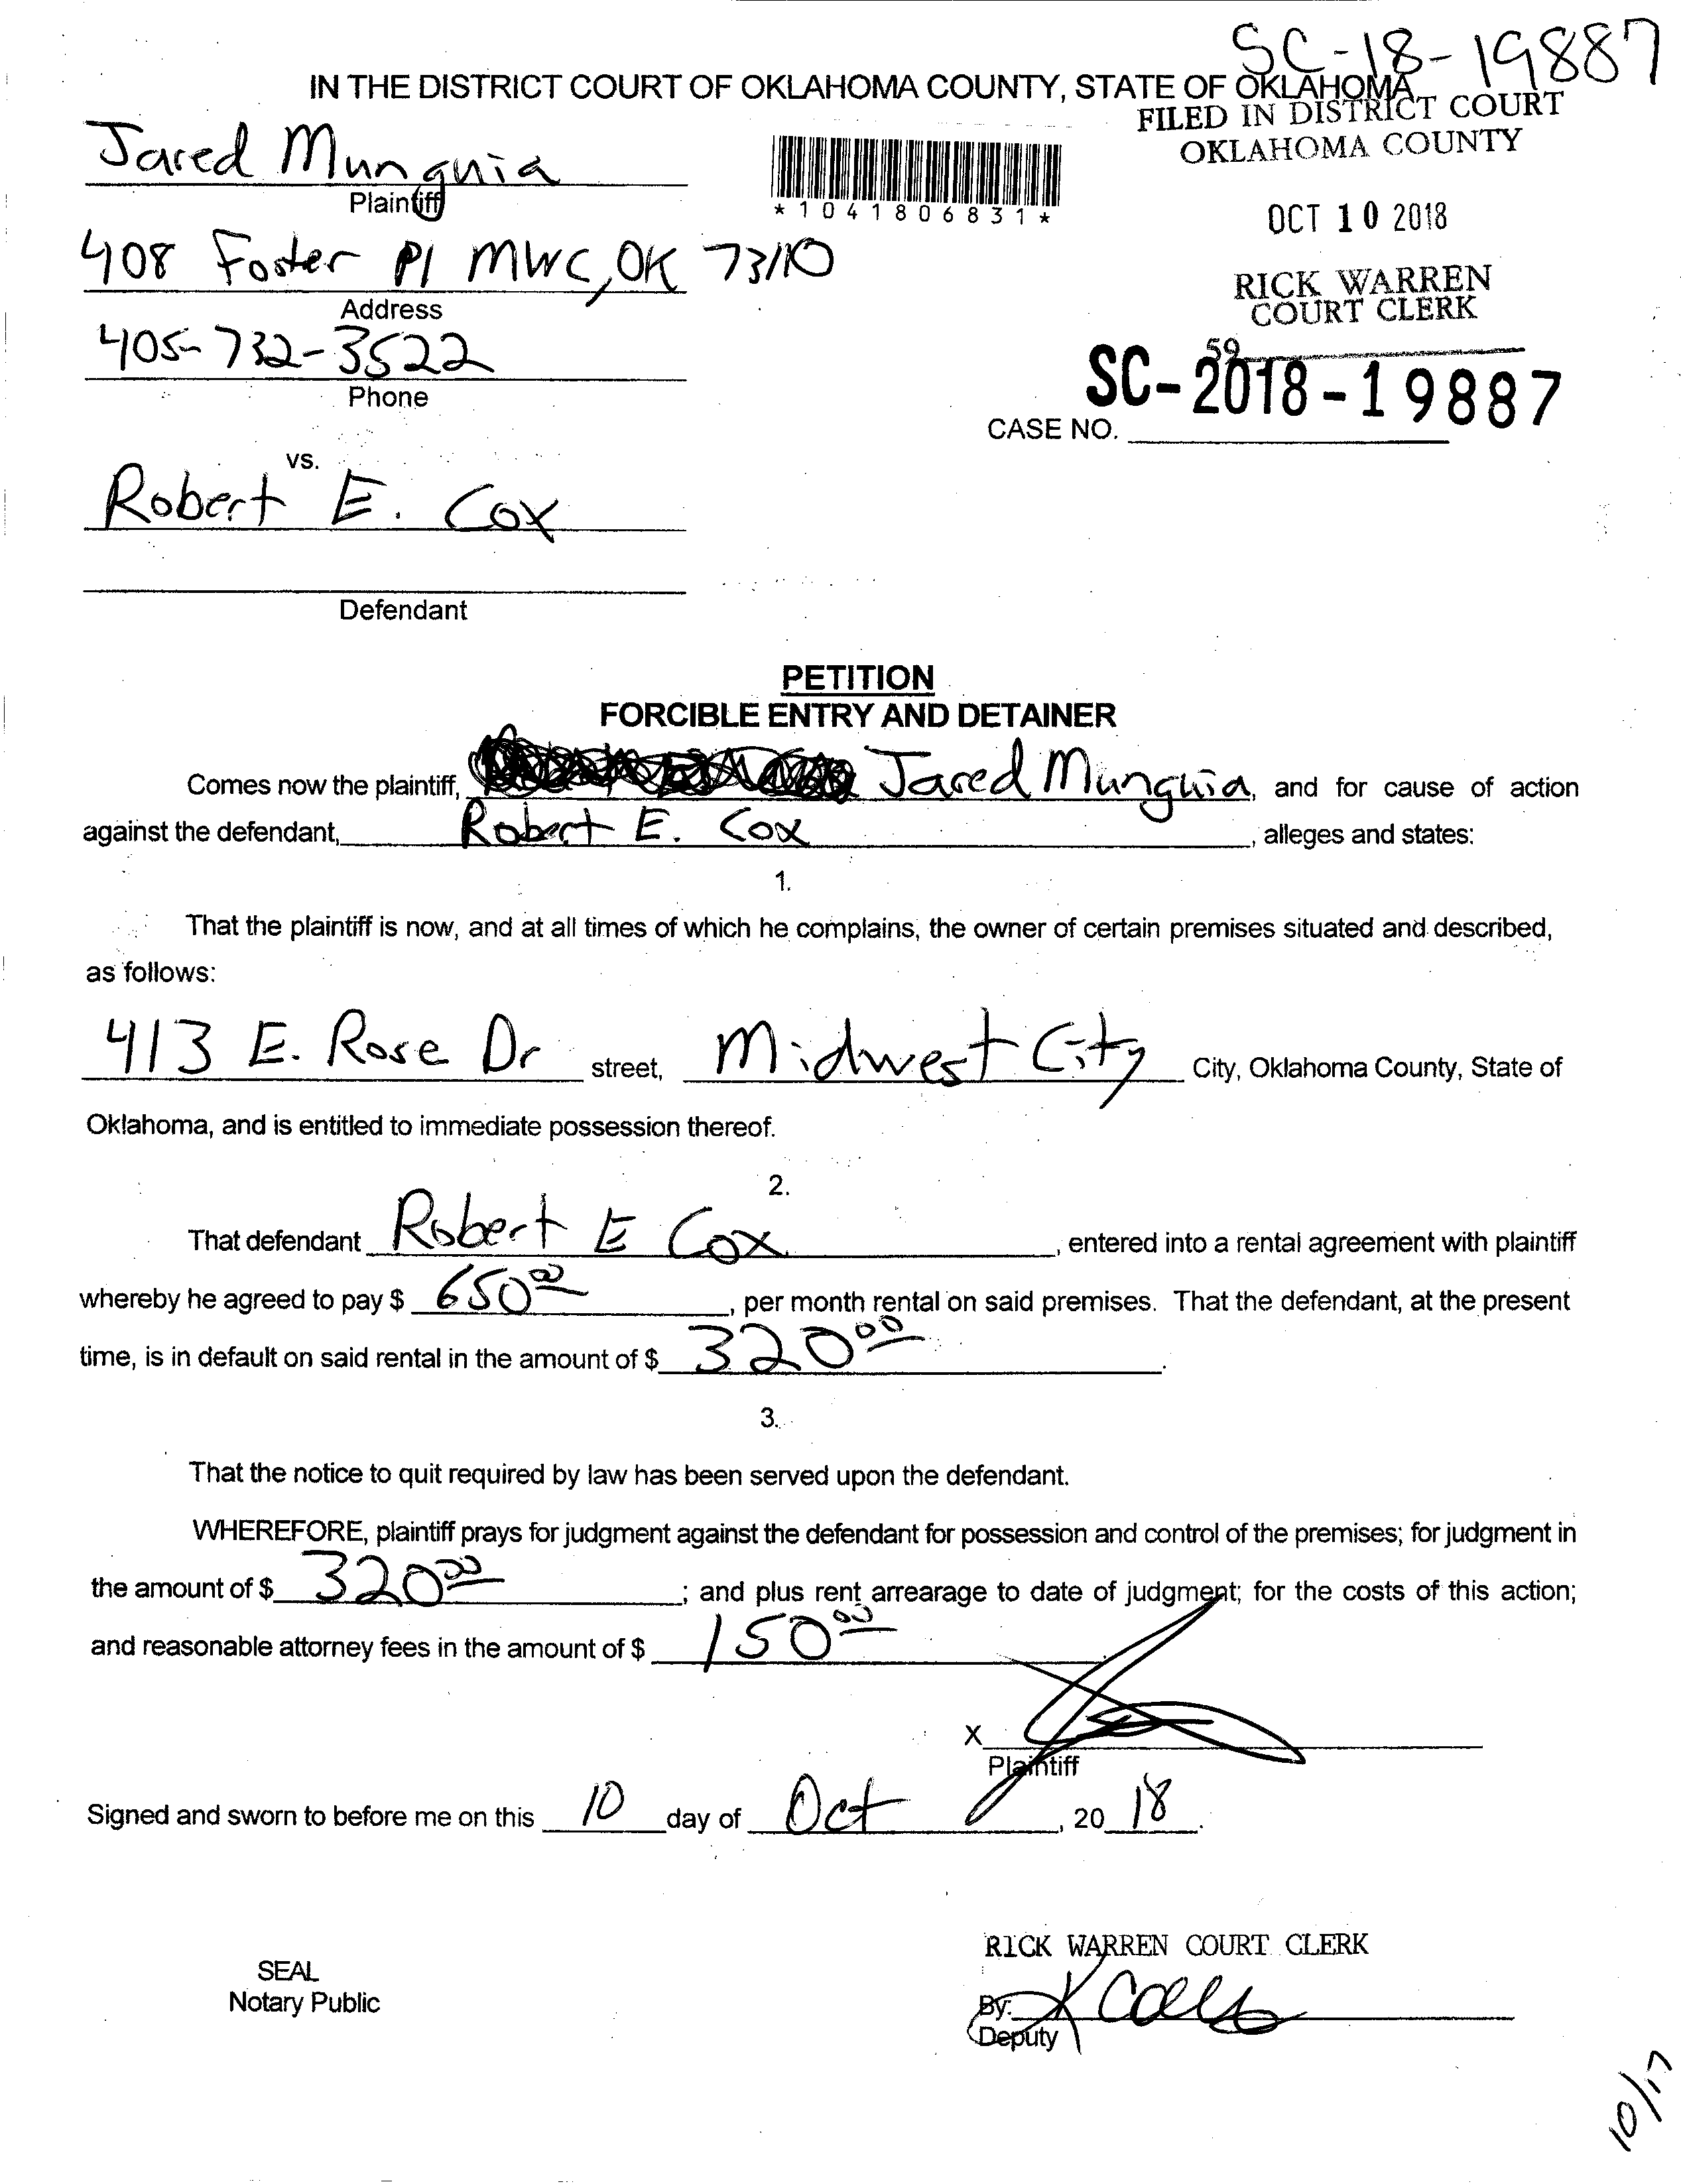 SC-18-19887
IN THE DISTRICT COURT OF OKLAHOMA COUNTY, STATE OF OKLAHOMA
FILED IN DISTRICT COURT
OKLAHOMA COUNTY
Jared Munguia
Plaintiff
*1041806831*
OCT 10 2018
408 Foster Pl MWC, OK 73110
Address
RICK WARREN
COURT CLERK
405-732-3522
Phone
59
SC-2018-19887
CASE NO.
vs.
Robert E. Cox
Defendant
PETITION
FORCIBLE ENTRY AND DETAINER
Comes now the plaintiff, Jared Munguia, and for cause of action
against the defendant, Robert E. Cox, alleges and states:
1.
That the plaintiff is now, and at all times of which he complains, the owner of certain premises situated and described,
as follows:
413 E. Rose Dr street, Midwest City City, Oklahoma County, State of
Oklahoma, and is entitled to immediate possession thereof.
2.
That defendant Robert E Cox, entered into a rental agreement with plaintiff
whereby he agreed to pay $ 650 00, per month rental on said premises. That the defendant, at the present
time, is in default on said rental in the amount of $ 320 00.
3.
That the notice to quit required by law has been served upon the defendant.
WHEREFORE, plaintiff prays for judgment against the defendant for possession and control of the premises; for judgment in
the amount of $ 320 00; and plus rent arrearage to date of judgment; for the costs of this action;
and reasonable attorney fees in the amount of $ 150 00
X
Plaintiff
Signed and sworn to before me on this 10 day of Oct, 20 18.
RICK WARREN COURT CLERK
SEAL
Notary Public
By:
Deputy
10/17